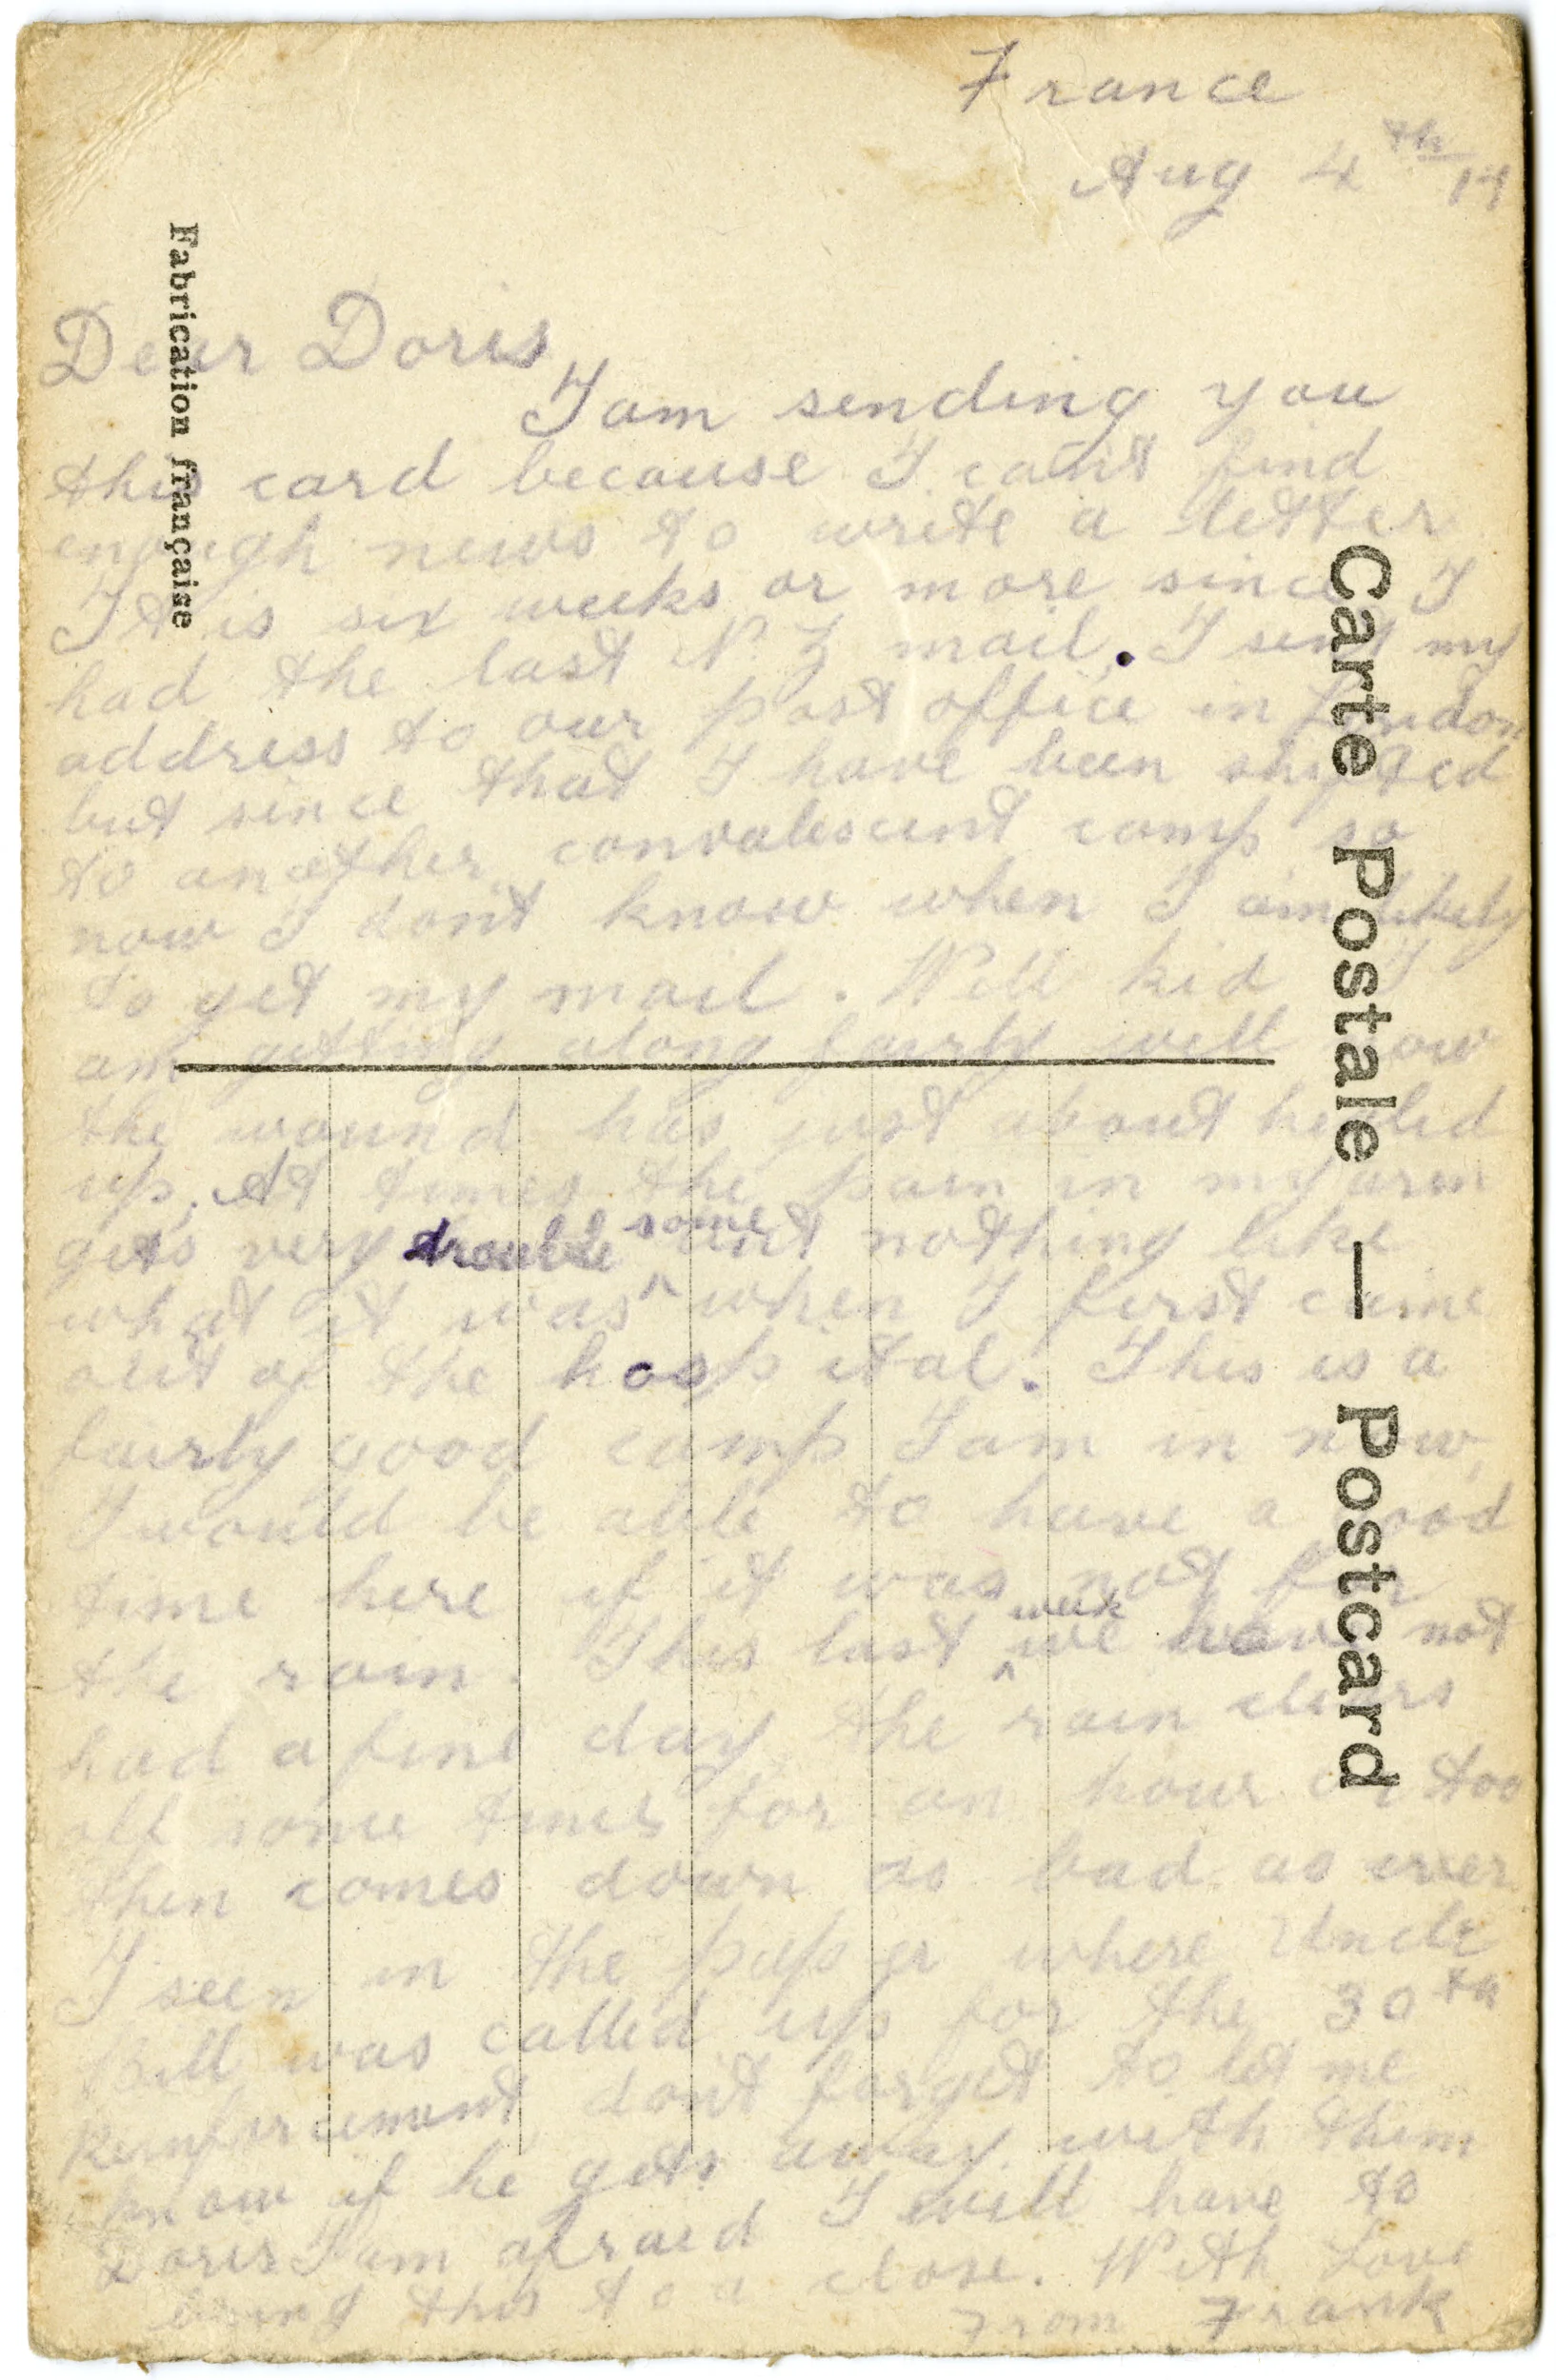 France
Aug 4th 17
Dear Doris
I am sending you
this card because I can't find
enough news to write a letter
It is six weeks or more since I
had the last N. Z mail. I sent my
address to our post office in London
but since that I have been shifted
to another convalescent camp so
now I dont know when I am likely
to get my mail. Well kid I
am getting along fairly well now
the wound has just about healed
up. At times the pain in my arm
gets very trouble some but nothing like
what it was when I first came
out of the hospital. This is a
fairly good camp I am in now,
I would be able to have a good
time here if it was not for
the rain. This last week we have not
had a fine day the rain clears
off some times for an hour or too
then comes down as bad as ever
I seen in the paper where Uncle
Bill was called up for the 30th
Reinforcement, dont forget to let me
know if he gets away with them
Doris I am afraid I will have to
bring this to a close. With Love
From Frank
Fabrication française
Carte Postale — Postcard